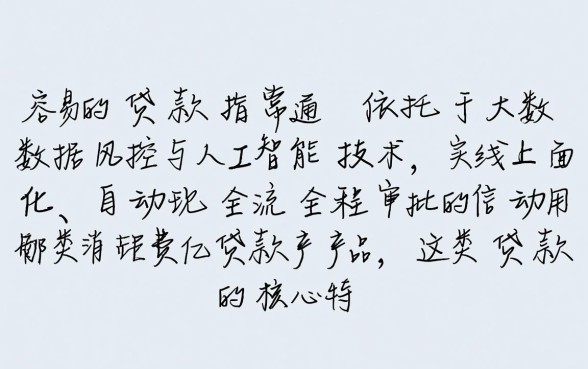 容易的贷款指常通 依托于大数
数据风控与人工智能技术，实线上面
化、自动现全流全程审批的信动用
那类消费亿贷款产产品，这类贷款
的核心特